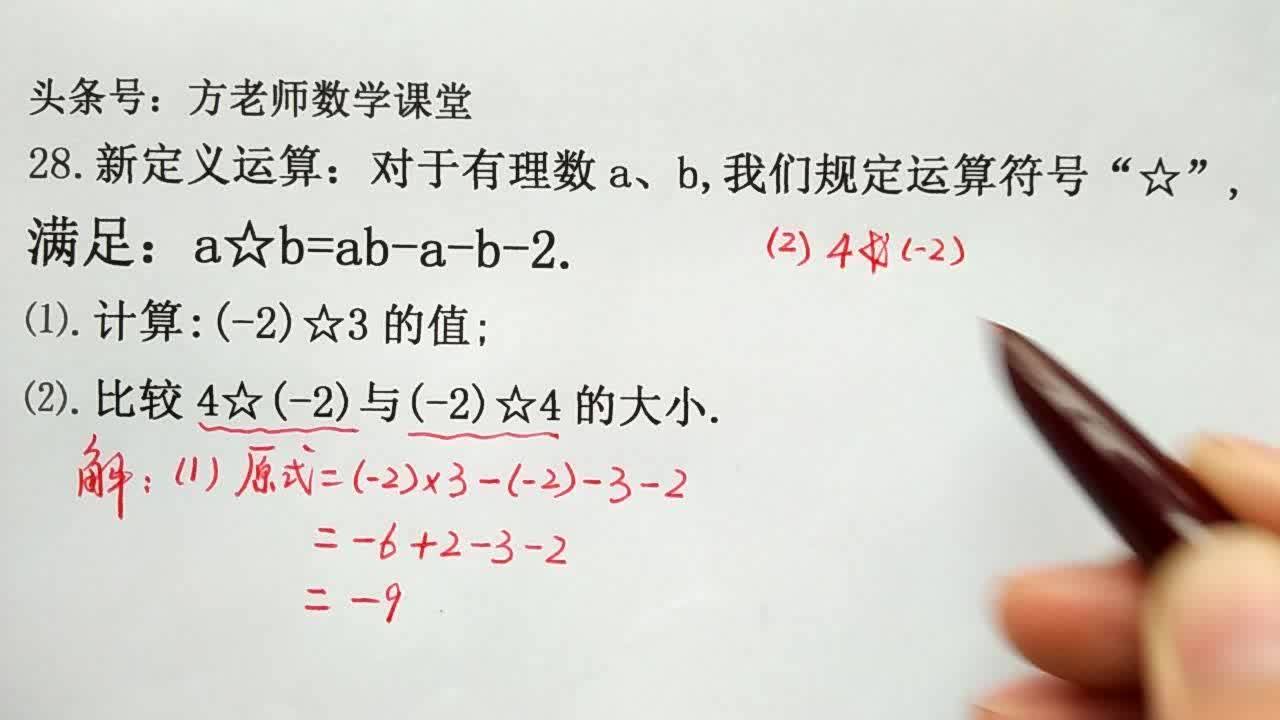 头条号：方老师数学课堂
28.新定义运算：对于有理数 a、b,我们规定运算符号“☆”,
满足：a☆b=ab-a-b-2.
(2) 4☆(-2)
⑴.计算:(-2)☆3 的值;
⑵.比较 4☆(-2)与(-2)☆4 的大小.
解：(1) 原式=(-2)×3-(-2)-3-2
=-6+2-3-2
=-9